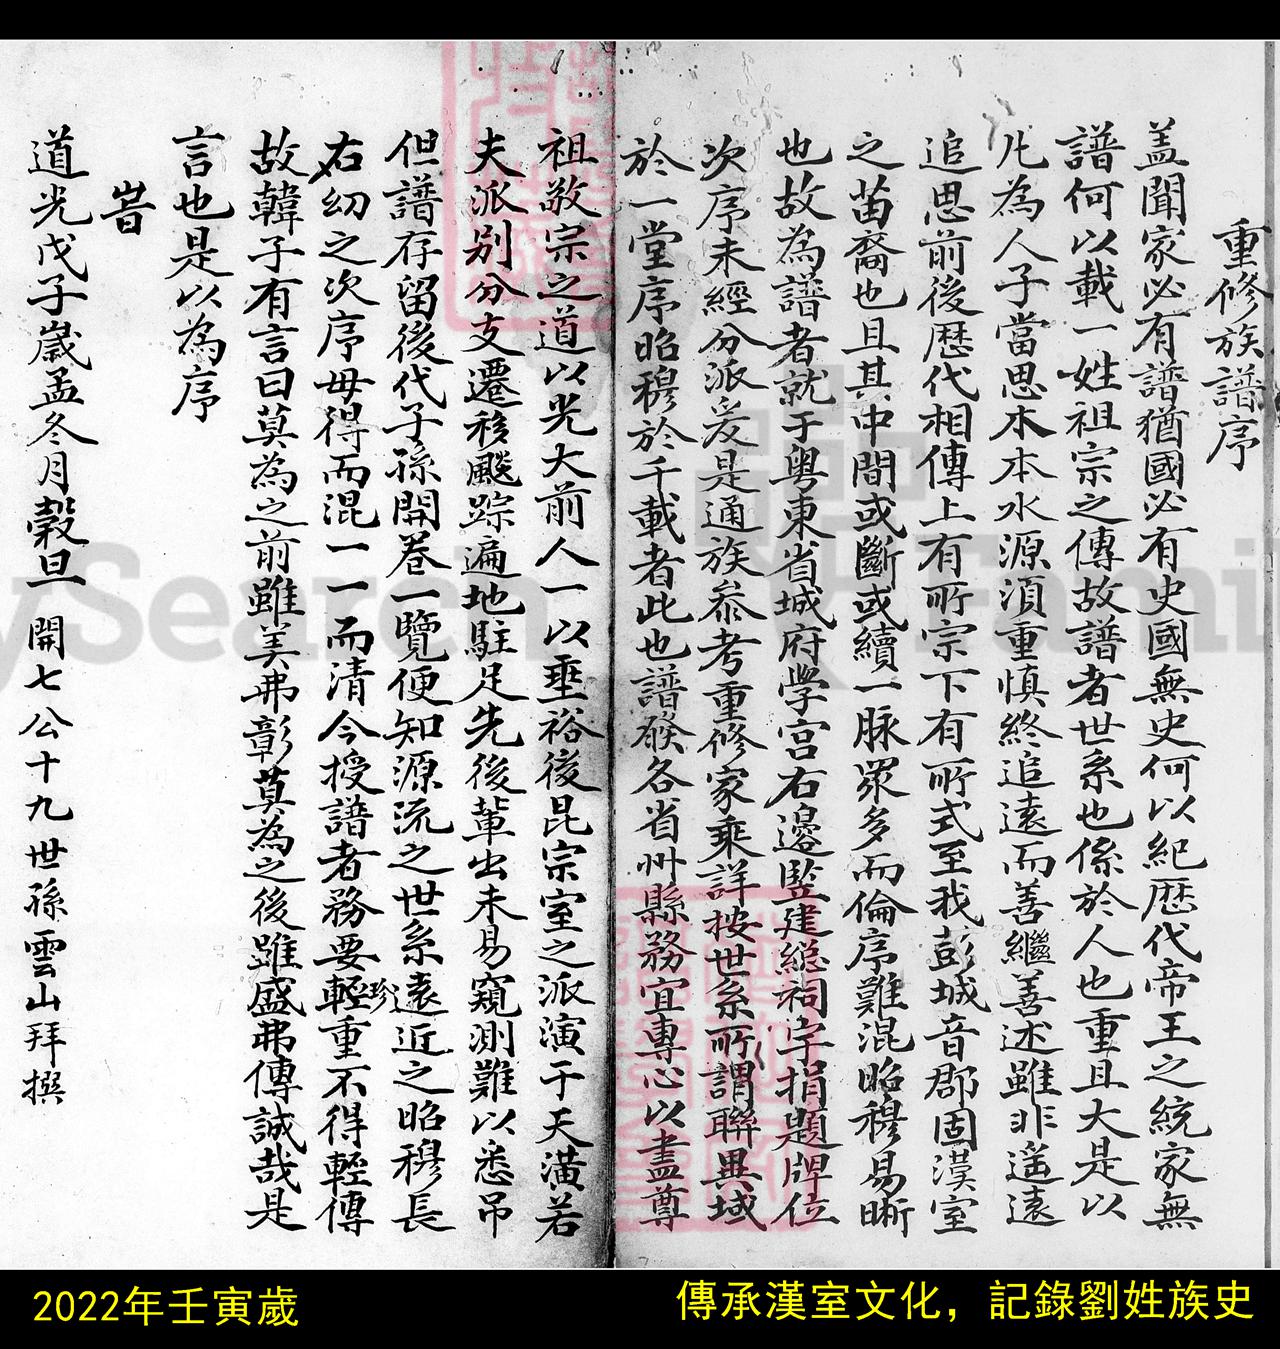 重修族譜序
盖聞家必有譜猶國必有史國無史何以紀歴代帝王之統家無
譜何以載一姓祖宗之傳故譜者世系也係於人也重且大是以
凡為人子當思木本水源須重慎終追遠而善繼善述雖非遥遠
追思前後歴代相傳上有所宗下有所式至我彭城音郡固漢室
之苗裔也且其中間或斷或續一脉眾多而倫序難混昭穆易晰
也故為譜者就于粤東省城府學宫右邊監建總祠字捐題牌位
次序未經分派爰是通族叅考重修家乘詳按世系所謂聯異域
於一堂序昭穆於千載者此也譜發各省州縣務宜專心以盡尊
祖敬宗之道以光大前人一以垂裕後昆宗室之派演于天潢若
夫派别分支遷移颷踪遍地駐足先後輩出未易窺測難以悉吊
但譜存留後代子孫開卷一覽便知源流之世系遠近之昭穆長
右幼之次序毋得而混一一而清今授譜者務要輕珍重不得輕傳
故韓子有言曰莫為之前雖美弗彰莫為之後雖盛弗傳誠哉是
言也是以為序
旹
道光戊子歲孟冬月穀旦 開七公十九世孫雲山拜撰
ySearch
Fami
2022年壬寅歲
傳承漢室文化，記錄劉姓族史